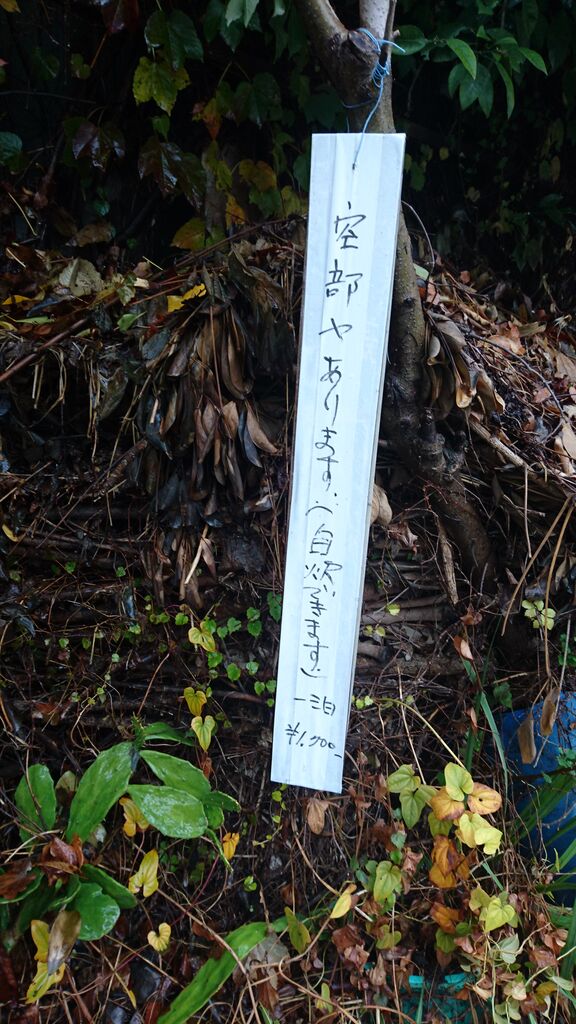 空部ヤあります。(自炊できます)
一泊